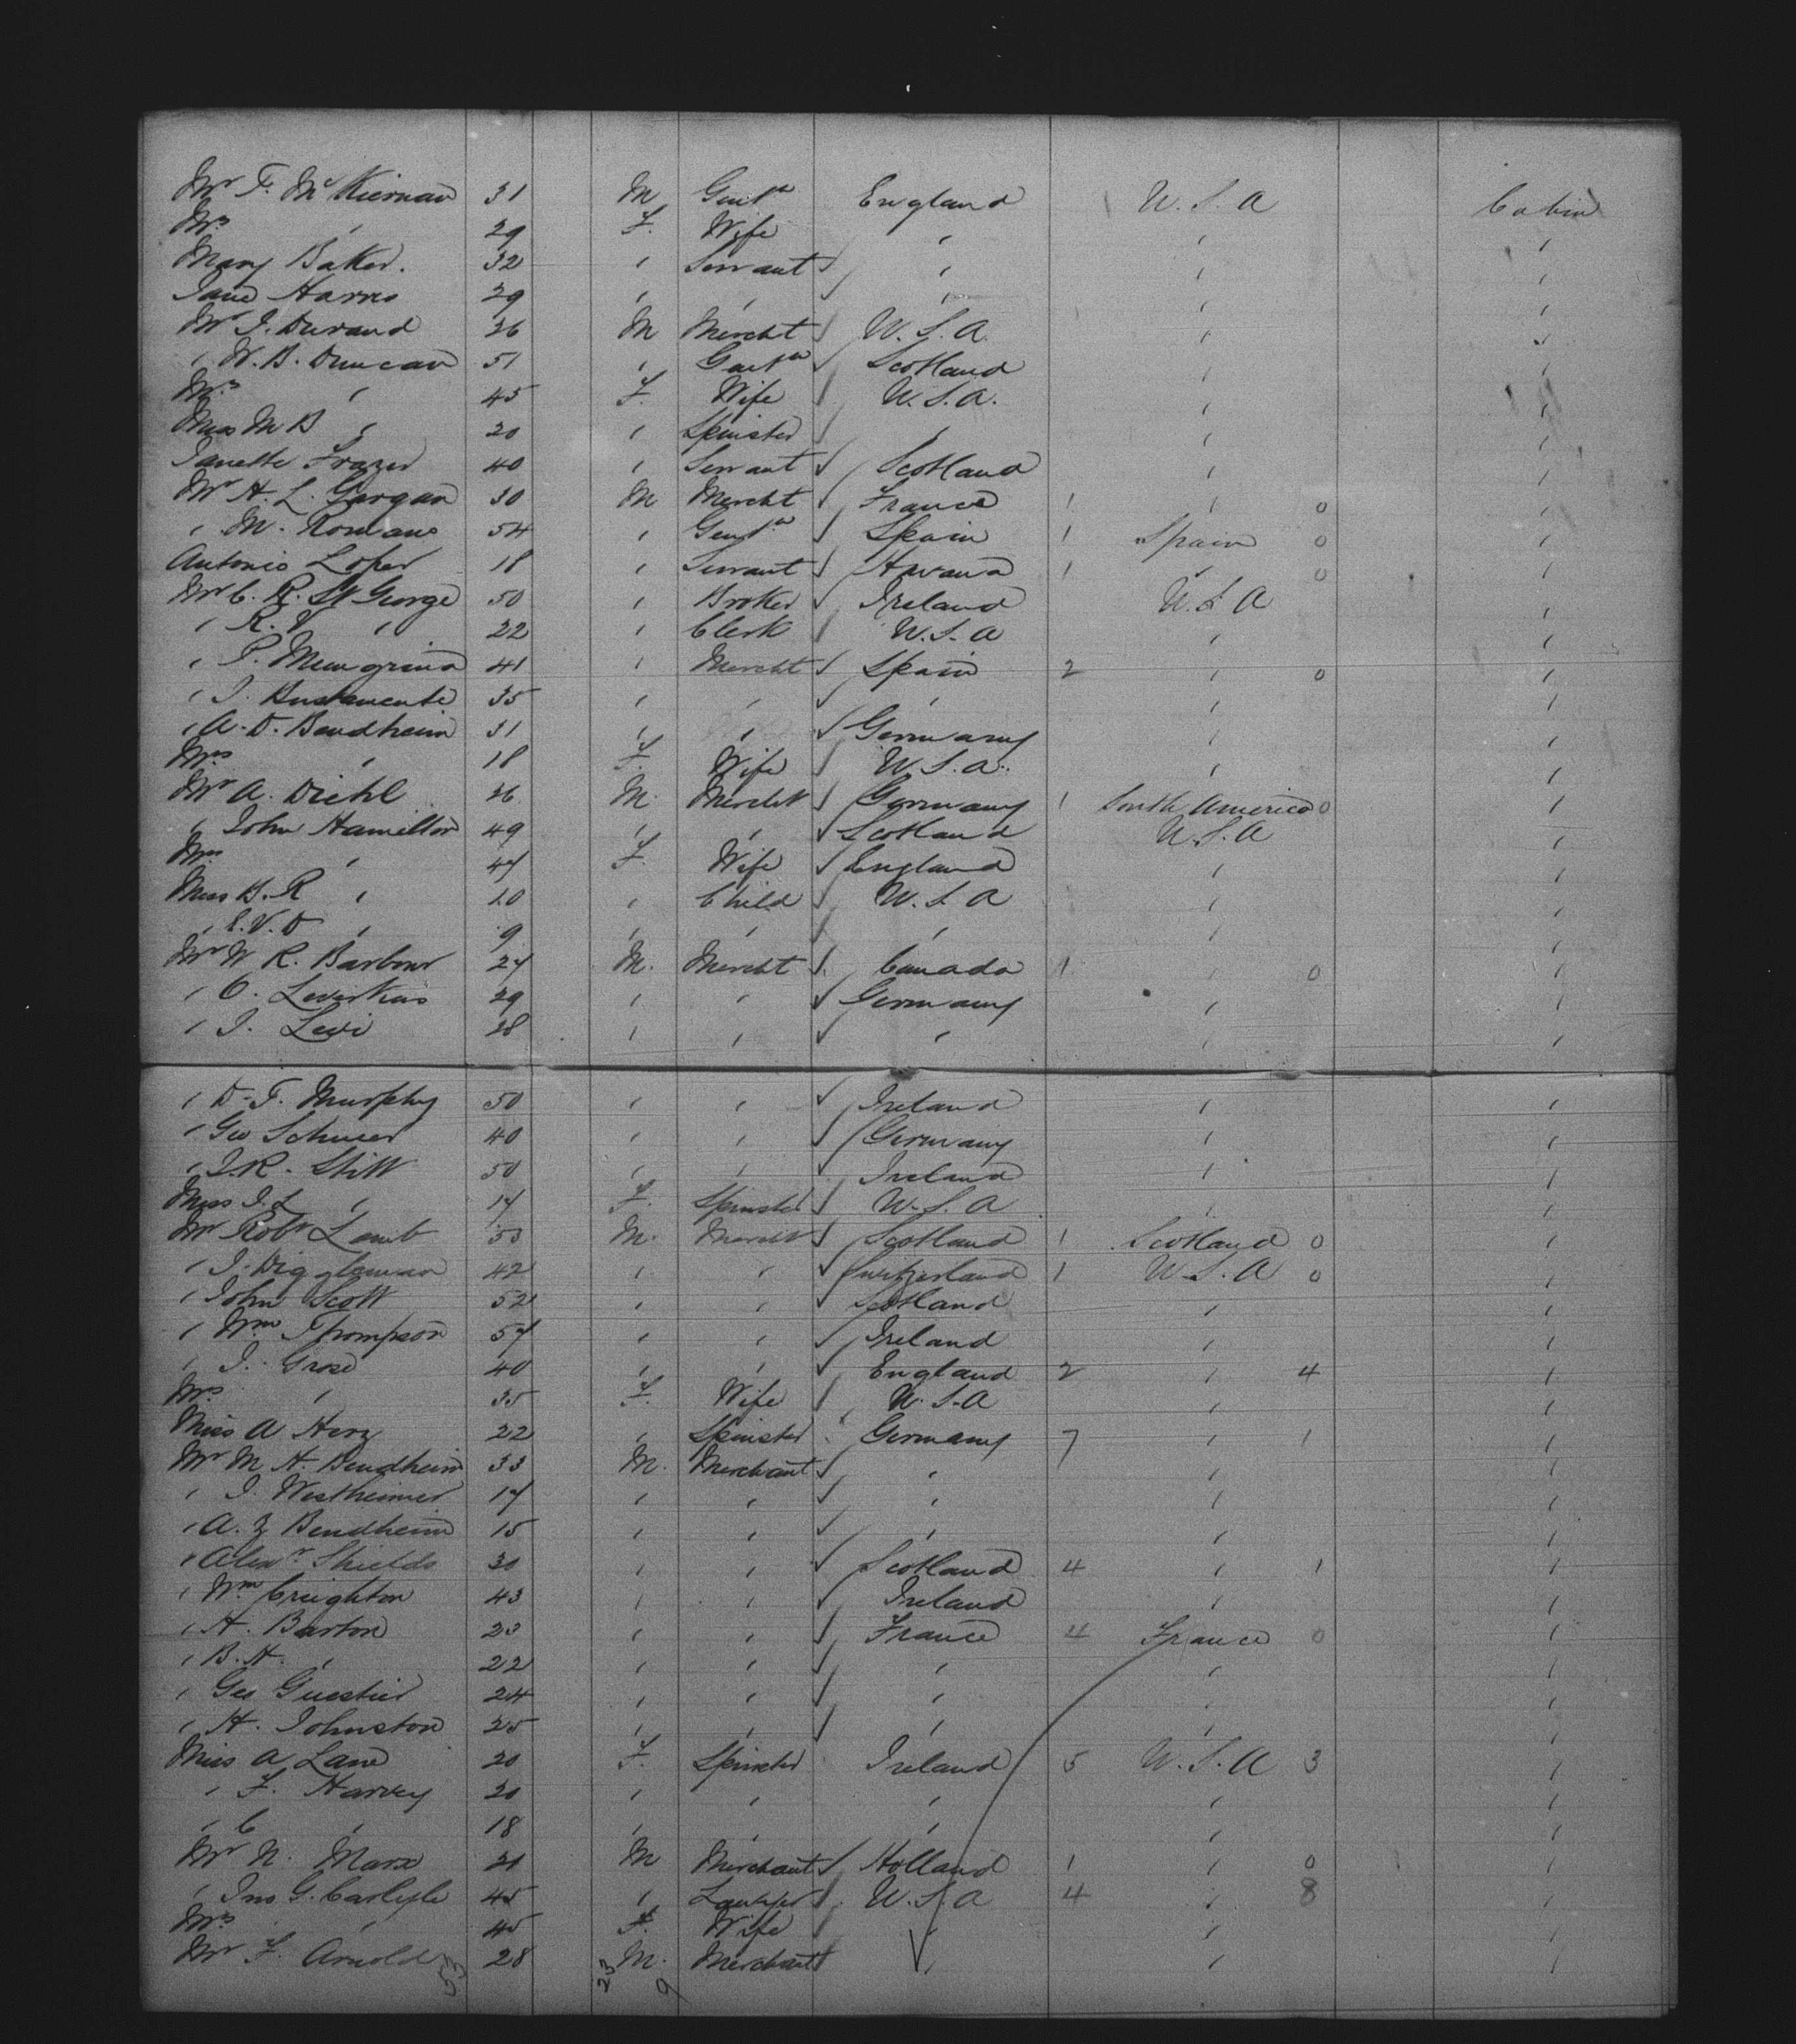 Mr F. McKiernan 31 M Gentn England U.S.A Cabin
Mrs " 29 F. Wife " " "
Mary Baker. 32 " Servant " " "
Jane Harris 29 " " " " "
Mr J. Durand 26 M Mercht U.S.A. " "
" W. B. Duncan 51 " Gentn Scotland " "
Mrs " 45 F. Wife U.S.A. " "
Miss M B " 20 " Spinster " " "
Janette Frazer 40 " Servant Scotland " "
Mr H. L. Gargan 30 M Mercht France 1 " 0 "
" M. Romano 54 " Gentn Spain 1 Spain 0 "
Antonio Lopez 18 " Servant Havana 1 " 0 "
Mr C. R. St George 50 " Broker Ireland U.S.A "
" R. V " 22 " Clerk U.S.A " "
" P. 41 " Mercht Spain 2 " 0 "
" J. Bustamente 35 " " " " "
" A. D. Bendheim 31 " " Germany " "
Mrs " 18 F. Wife U.S.A. " "
Mr A. Diehl 26 M. Mercht Germany 1 South America 0 "
" John Hamilton 49 " " Scotland U.S.A "
Mrs " 47 F. Wife England " "
Miss B. R " 10 " Child U.S.A " "
" E. V. D " 9 " " " " "
Mr W R. Barbour 27 M. Mercht Canada 1 " 0 "
" O. Leverkus 29 " " Germany " "
" J. Levi 28 " " " " "
" D. F. Murphy 50 " " Ireland " "
" Geo 40 " " Germany " "
" J. R. Stitt 50 " " Ireland " "
Miss J. L " 17 F. Spinster U.S.A " "
Mr Robt Lamb 53 M. Mercht Scotland 1 Scotland 0 "
" J. Diggleman 42 " " Switzerland 1 U.S.A 0 "
" John Scott 52 " " Scotland " "
" Wm Thompson 57 " " Ireland " "
" J. Grose 40 " " England 2 " 4 "
Mrs " 35 F. Wife U.S.A " "
Miss A Herz 22 " Spinster Germany 7 " 1 "
Mr M H. Bendheim 33 M. Merchant " " "
" J. Westheimer 17 " " " " "
" A. Z Bendheim 15 " " " " "
" Alexr Shields 30 " " Scotland 4 " 1 "
" Wm Creighton 43 " " Ireland " "
" H. Barton 23 " " France 4 France 0 "
" B. H. " 22 " " " " "
" Geo Guestier 24 " " " " "
" H. Johnston 25 " " " " "
Miss A Lane 20 F. Spinster Ireland 5 U.S.A 3 "
" F. Harvey 20 " " " " "
" C " 18 " " " " "
Mr N. Marx 21 M Merchant Holland 1 " 0 "
" Jno G. Carlyle 45 " Lawyer U.S.A 4 " 8 "
Mrs " 45 F. Wife " " "
Mr F. Arnold 28 M. Merchant " " "
53 23 9